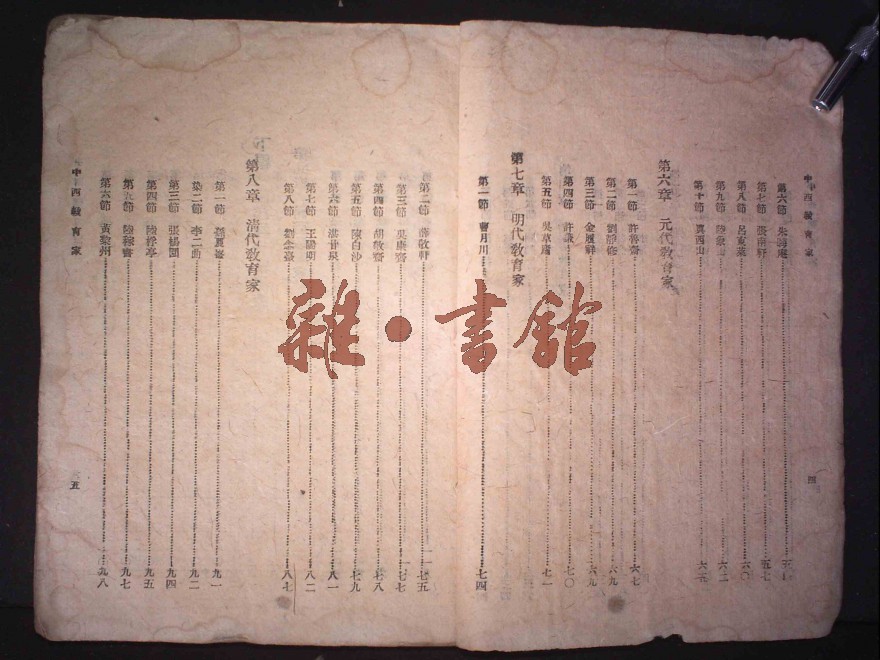 中西教育家
第六節 朱晦庵
第七節 張南軒 五七
第八節 呂東萊 六〇
第九節 陸象山 六二
第十節 真西山
第六章 元代教育家
第一節 許魯齋 六七
第二節 劉靜修 六九
第三節 金履祥 六九
第四節 許謙 七〇
第五節 吳草廬 七一
第七章 明代教育家
第一節 曹月川 七四
四
第二節 薛敬軒 七五
第三節 吳康齋 七七
第四節 胡敬齋 七八
第五節 陳白沙 七九
第六節 湛甘泉 八一
第七節 王陽明 八二
第八節 劉念臺 八七
第八章 清代教育家
第一節 孫夏峯 九一
第二節 李二曲 九二
第三節 張楊園 九四
第四節 陸桴亭 九五
第五節 陸稼書 九七
第六節 黃黎州 九八
中西教育家
五
雜·書館